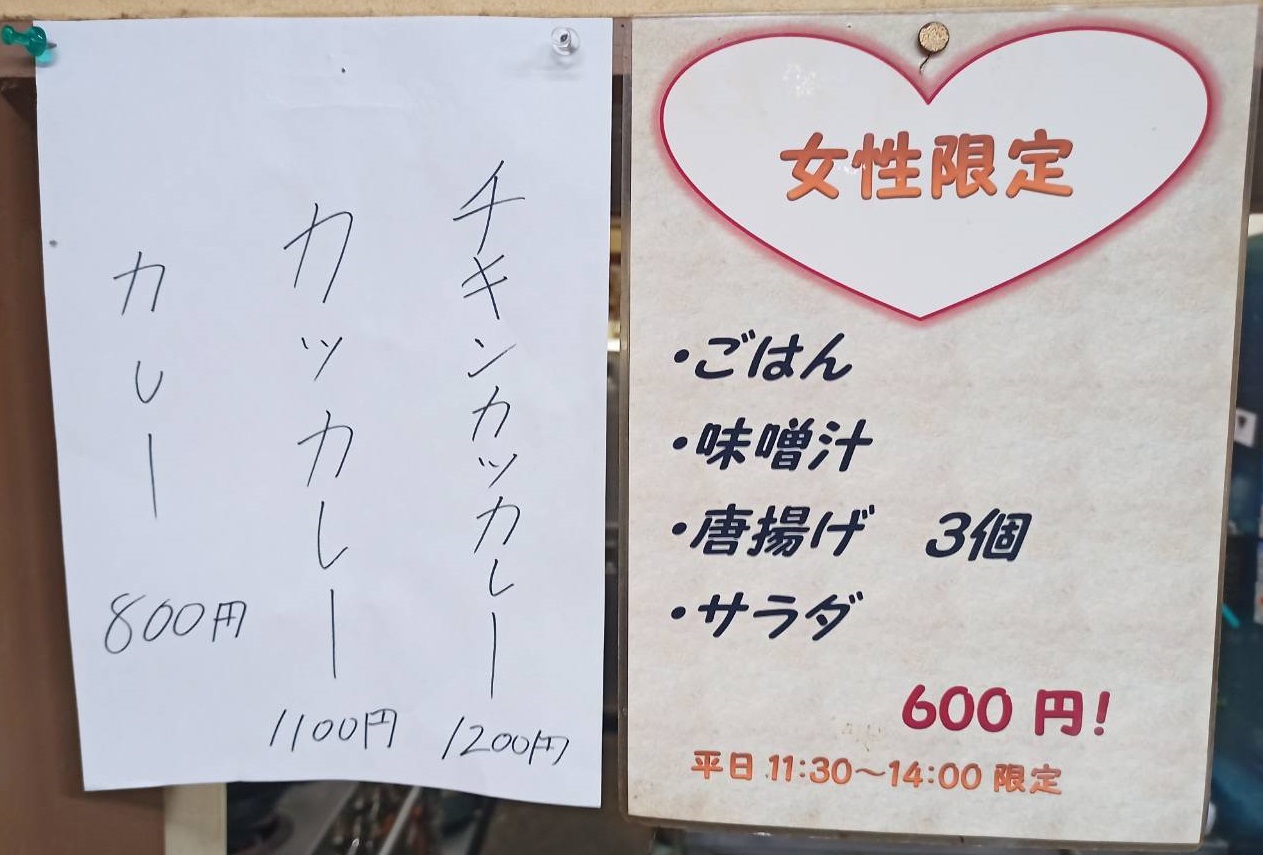 チキンカツカレー
1200円
カツカレー
1100円
カレー
800円
女性限定
・ごはん
・味噌汁
・唐揚げ 3個
・サラダ
600円!
平日 11:30～14:00 限定